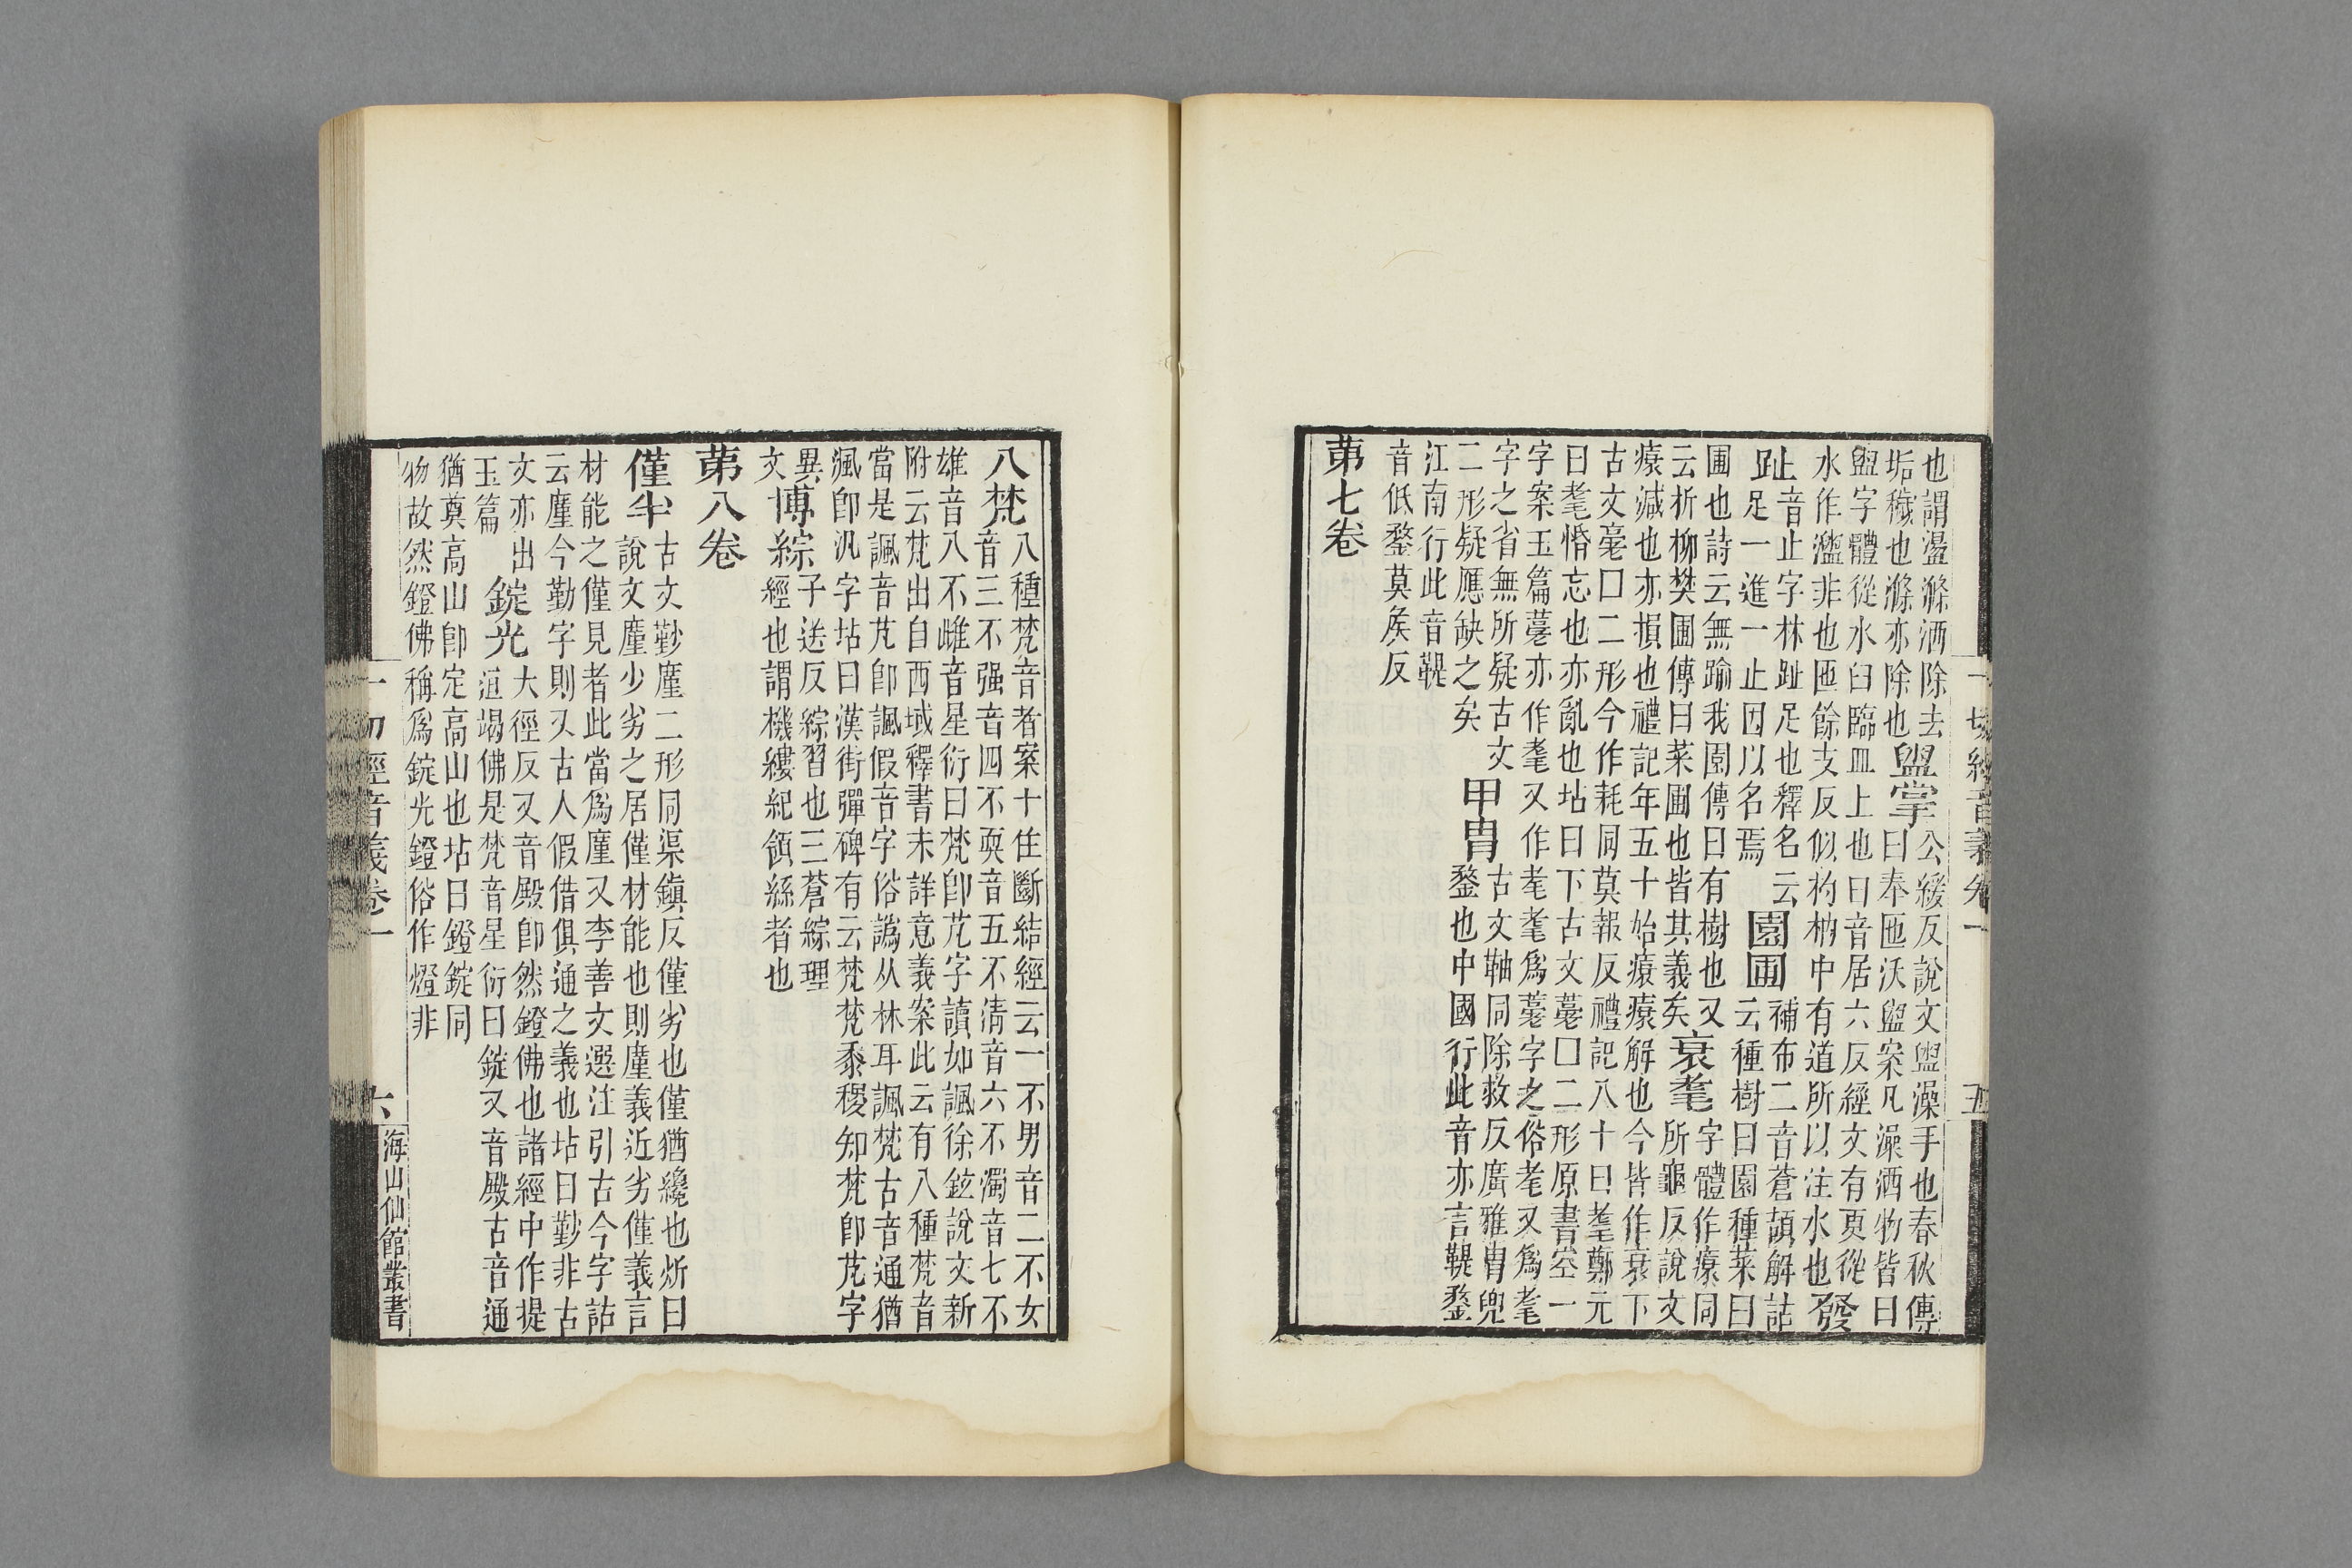 一切經音義卷一　五
也謂盪滌洒除去
垢穢也滌亦除也
盥掌
公緩反說文盥澡手也春秋傳
曰奉匜沃盥案凡澡洒物皆曰
盥字體從水臼臨皿上也曰音居六反經文有更從
水作濫非也匜餘支反似杓枘中有道所以注水也
發
趾
音止字林趾足也釋名云
足一進一止因以名焉
園圃
補布二音蒼頡解詁
云種樹曰園種菜曰
圃也詩云無踰我園傳曰有樹也又
云折柳樊圃傳曰菜圃也皆其義矣
衰耄
字體作㾽同
所龜反說文
㾽減也亦損也禮記年五十始㾽㾽解也今皆作衰下
古文薹囗二形今作耗同莫報反禮記八十曰耄鄭元
曰耄惛忘也亦亂也坫曰下古文薹囗二形原書空一
字案玉篇薹亦作耄又作耄耄爲薹字之俗耄又爲耄
字之省無所疑古文
二形疑應缺之矣
甲冑
古文䩜同除救反廣雅冑兜
鍪也中國行此音亦言鞮鍪
江南行此音鞮
音低鍪莫矦反
第七卷
八梵
八種梵音者案十住斷結經云一不男音二不女
音三不强音四不耎音五不淸音六不濁音七不
雄音八不雌音星衍曰梵卽芃字讀如諷徐鉉說文新
附云梵出自西域釋書未詳意義案此云有八種梵音
當是諷音芃卽諷假音字俗譌从林耳諷梵古音通猶
渢卽汎字坫曰漢街彈碑有云梵梵黍稷知梵卽芃字
異
文
博綜
子送反綜習也三蒼綜理
經也謂機縷紀領絲者也
第八卷
僅半
古文㔤廑二形同渠鎭反僅劣也僅猶纔也炘曰
說文廑少劣之居僅材能也則廑義近劣僅義言
材能之僅見者此當爲廑又李善文選注引古今字詁
云廑今勤字則又古人假借俱通之義也坫曰㔤非古
文亦出
玉篇
錠光
大徑反又音殿卽然鐙佛也諸經中作提
洹竭佛是梵音星衍曰錠又音殿古音通
猶奠高山卽定高山也坫曰鐙錠同
物故然鐙佛稱爲錠光鐙俗作燈非
一切經音義卷一　六
海山仙館叢書